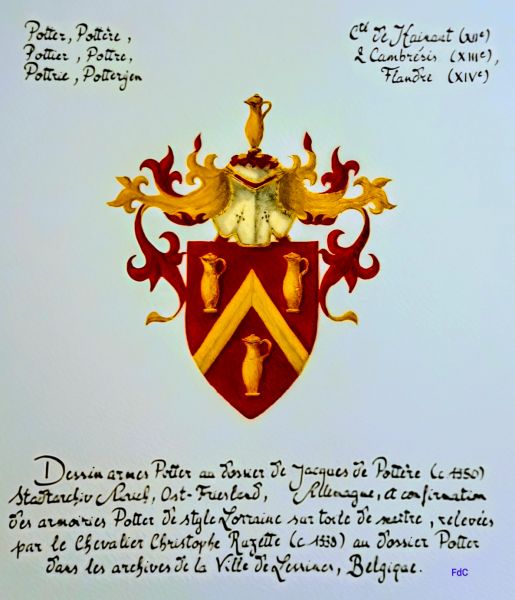 Potter, Pottère,
Pottier, Pottre,
Pottrie, Potterjen
Cté de Hainaut (XIIe)
& Cambrésis (XIIIe),
Flandre (XIVe)
Dessin armes Potter au dossier de Jacques de Pottère (c 1550)
Stadtarchiv Aurich, Ost-Friesland, Allemagne, et confirmation
des armoiries Potter de style Lorraine sur toile de maître, relevées
par le Chevalier Christophe Razette (c 1538) au dossier Potter
dans les archives de la Ville de Lessines, Belgique.
FdC